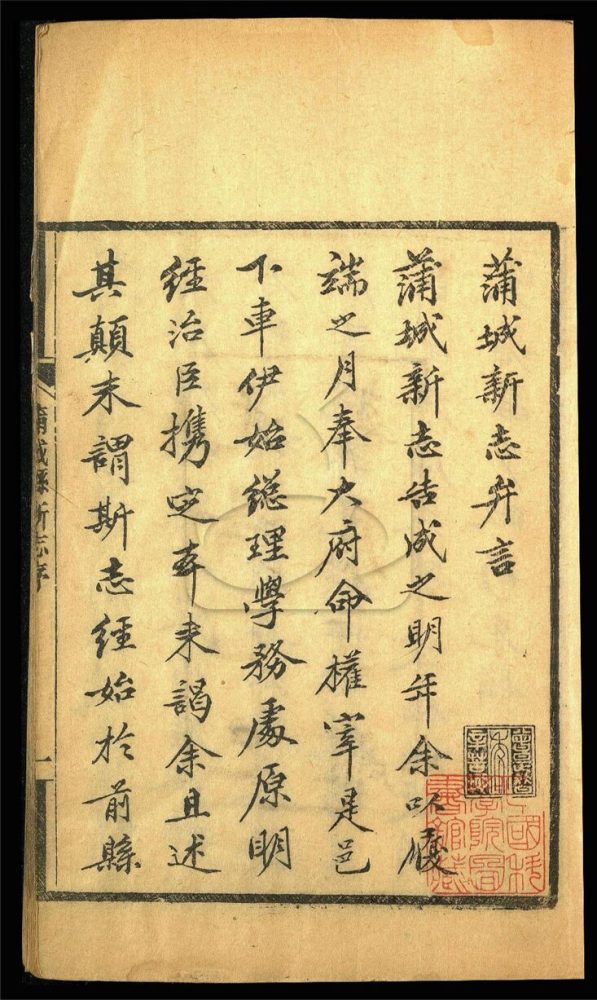 蒲城新志弁言
蒲城新志告成之明年余以履
端之月奉大府命權宰是邑
下車伊始總理學務處原明
經治臣攜定本來謁余且述
其顛末謂斯志經始於前縣
蒲城縣新志序
一
國科
院圖
書館藏